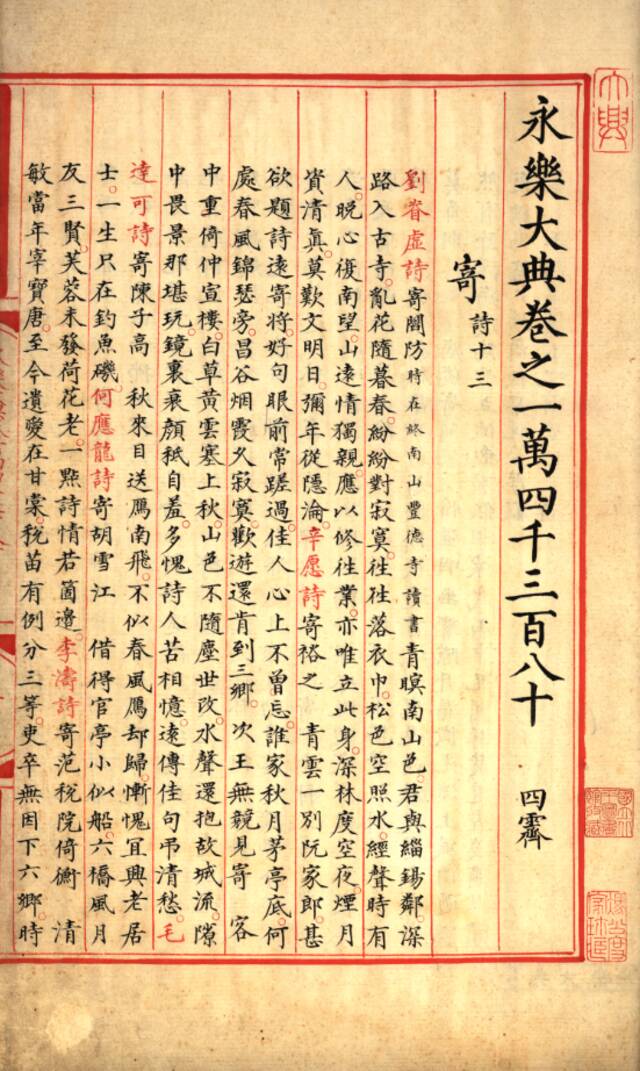 永樂大典卷之一萬四千三百八十 四霽
寄 詩十三
劉眘虛詩寄閻防時在終南山豐德寺讀書青暝南山色。君與緇錫鄰。深
路入古寺。亂花隨暮春。紛紛對寂寞。往往落衣巾。松色空照水。經聲時有
人。晚心復南望。山遠情獨親。應以修往業。亦唯立此身。深林度空夜。煙月
資清真。莫歎文明日。彌年從隱淪。辛愿詩寄裕之 青雲一別阮家郎。甚
欲題詩遠寄將。好句眼前常蹉過。佳人心上不曾忘。誰家秋月茅亭底。何
處春風錦瑟旁。昌谷烟霞久寂寞。歡遊還肯到三鄉。次王無競見寄 客
中重倚仲宣樓。白草黃雲塞上秋。山色不隨塵世改。水聲還抱故城流。隙
中畏景那堪玩。鏡裏衰顏秪自羞。多愧詩人苦相憶。遠傳佳句弔清愁。毛
達可詩寄陳子高 秋來目送鴈南飛。不似春風鴈却歸。慚愧宜興老居
士。一生只在釣魚磯。何應龍詩寄胡雪江 借得官亭小似船。六橋風月
友三賢。芙蓉未發荷花老。一點詩情若箇邊。李濤詩寄范稅院倚衡 清
敏當年宰寶唐。至今遺愛在甘棠。稅苗有例分三等。吏卒無因下六鄉。時
大興